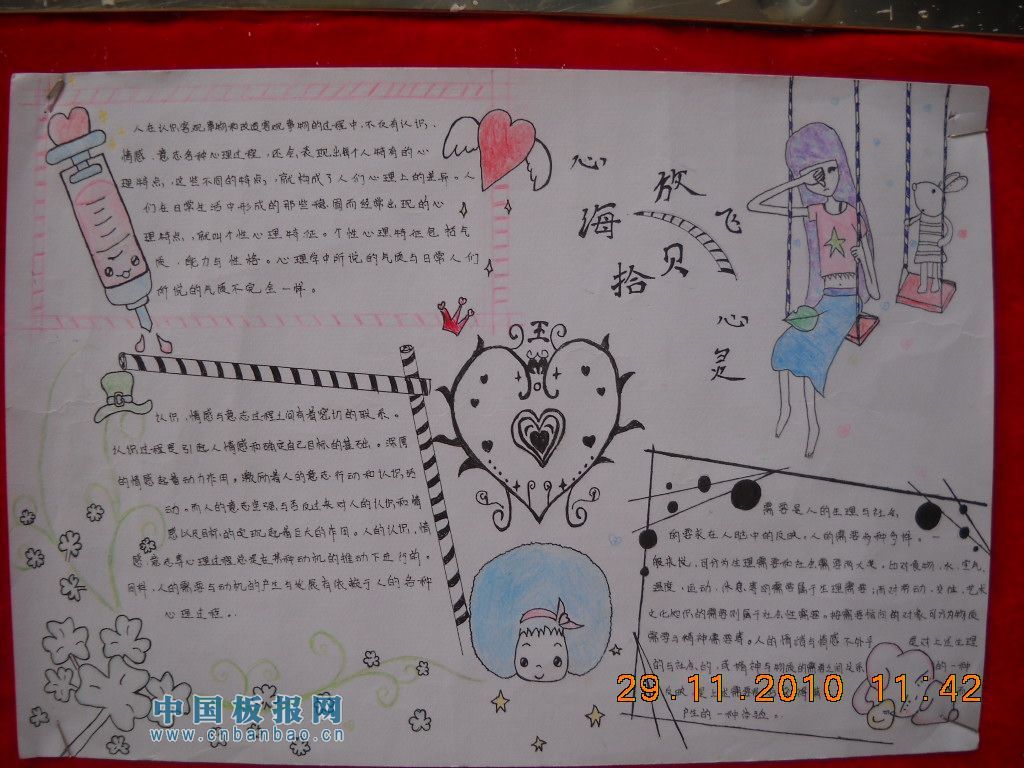 人在认识客观事物和改造客观事物的过程中,不仅有认识、
情感、意志各种心理过程,还会表现出每个人特有的心
理特点,这些不同的特点,就构成了人们心理上的差异。人
们在日常生活中形成的那些稳固而经常出现的心
理特点,就叫个性心理特征。个性心理特征包括气
质、能力与性格。心理学中所说的气质与日常人们
所说的气质不完全一样。
心海拾贝
放飞心灵
王
认识、情感与意志过程之间有着密切的联系。
认识过程是引起人情感和确定自己目标的基础。深厚
的情感起着动力作用,激励着人的意志行动和认识活
动。而人的意志坚强与否反过来对人的认识和情
感以及目标的实现起着巨大的作用。人的认识、情
感、意志等心理过程总是在某种动机的推动下进行的。
同样,人的需要与动机的产生与发展有依赖于人的各种
心理过程。
需要是人的生理与社会
的要求在人脑中的反映。人的需要多种多样。一
般来说,可分为生理需要和社会需要两大类,如对食物、水、空气、
温度、运动、休息等的需要属于生理需要;而对劳动、交往、艺术
文化知识的需要则属于社会性需要。按需要指向的对象可分为物质
需要与精神需要等。人的情绪与情感不外乎 是对上述生理
的与社会的,或精神与物质的需要之间关系 的一种
反映,是
产生的一种体验。
29 11 2010 11:42
中国板报网
www.cnbanbao.cn